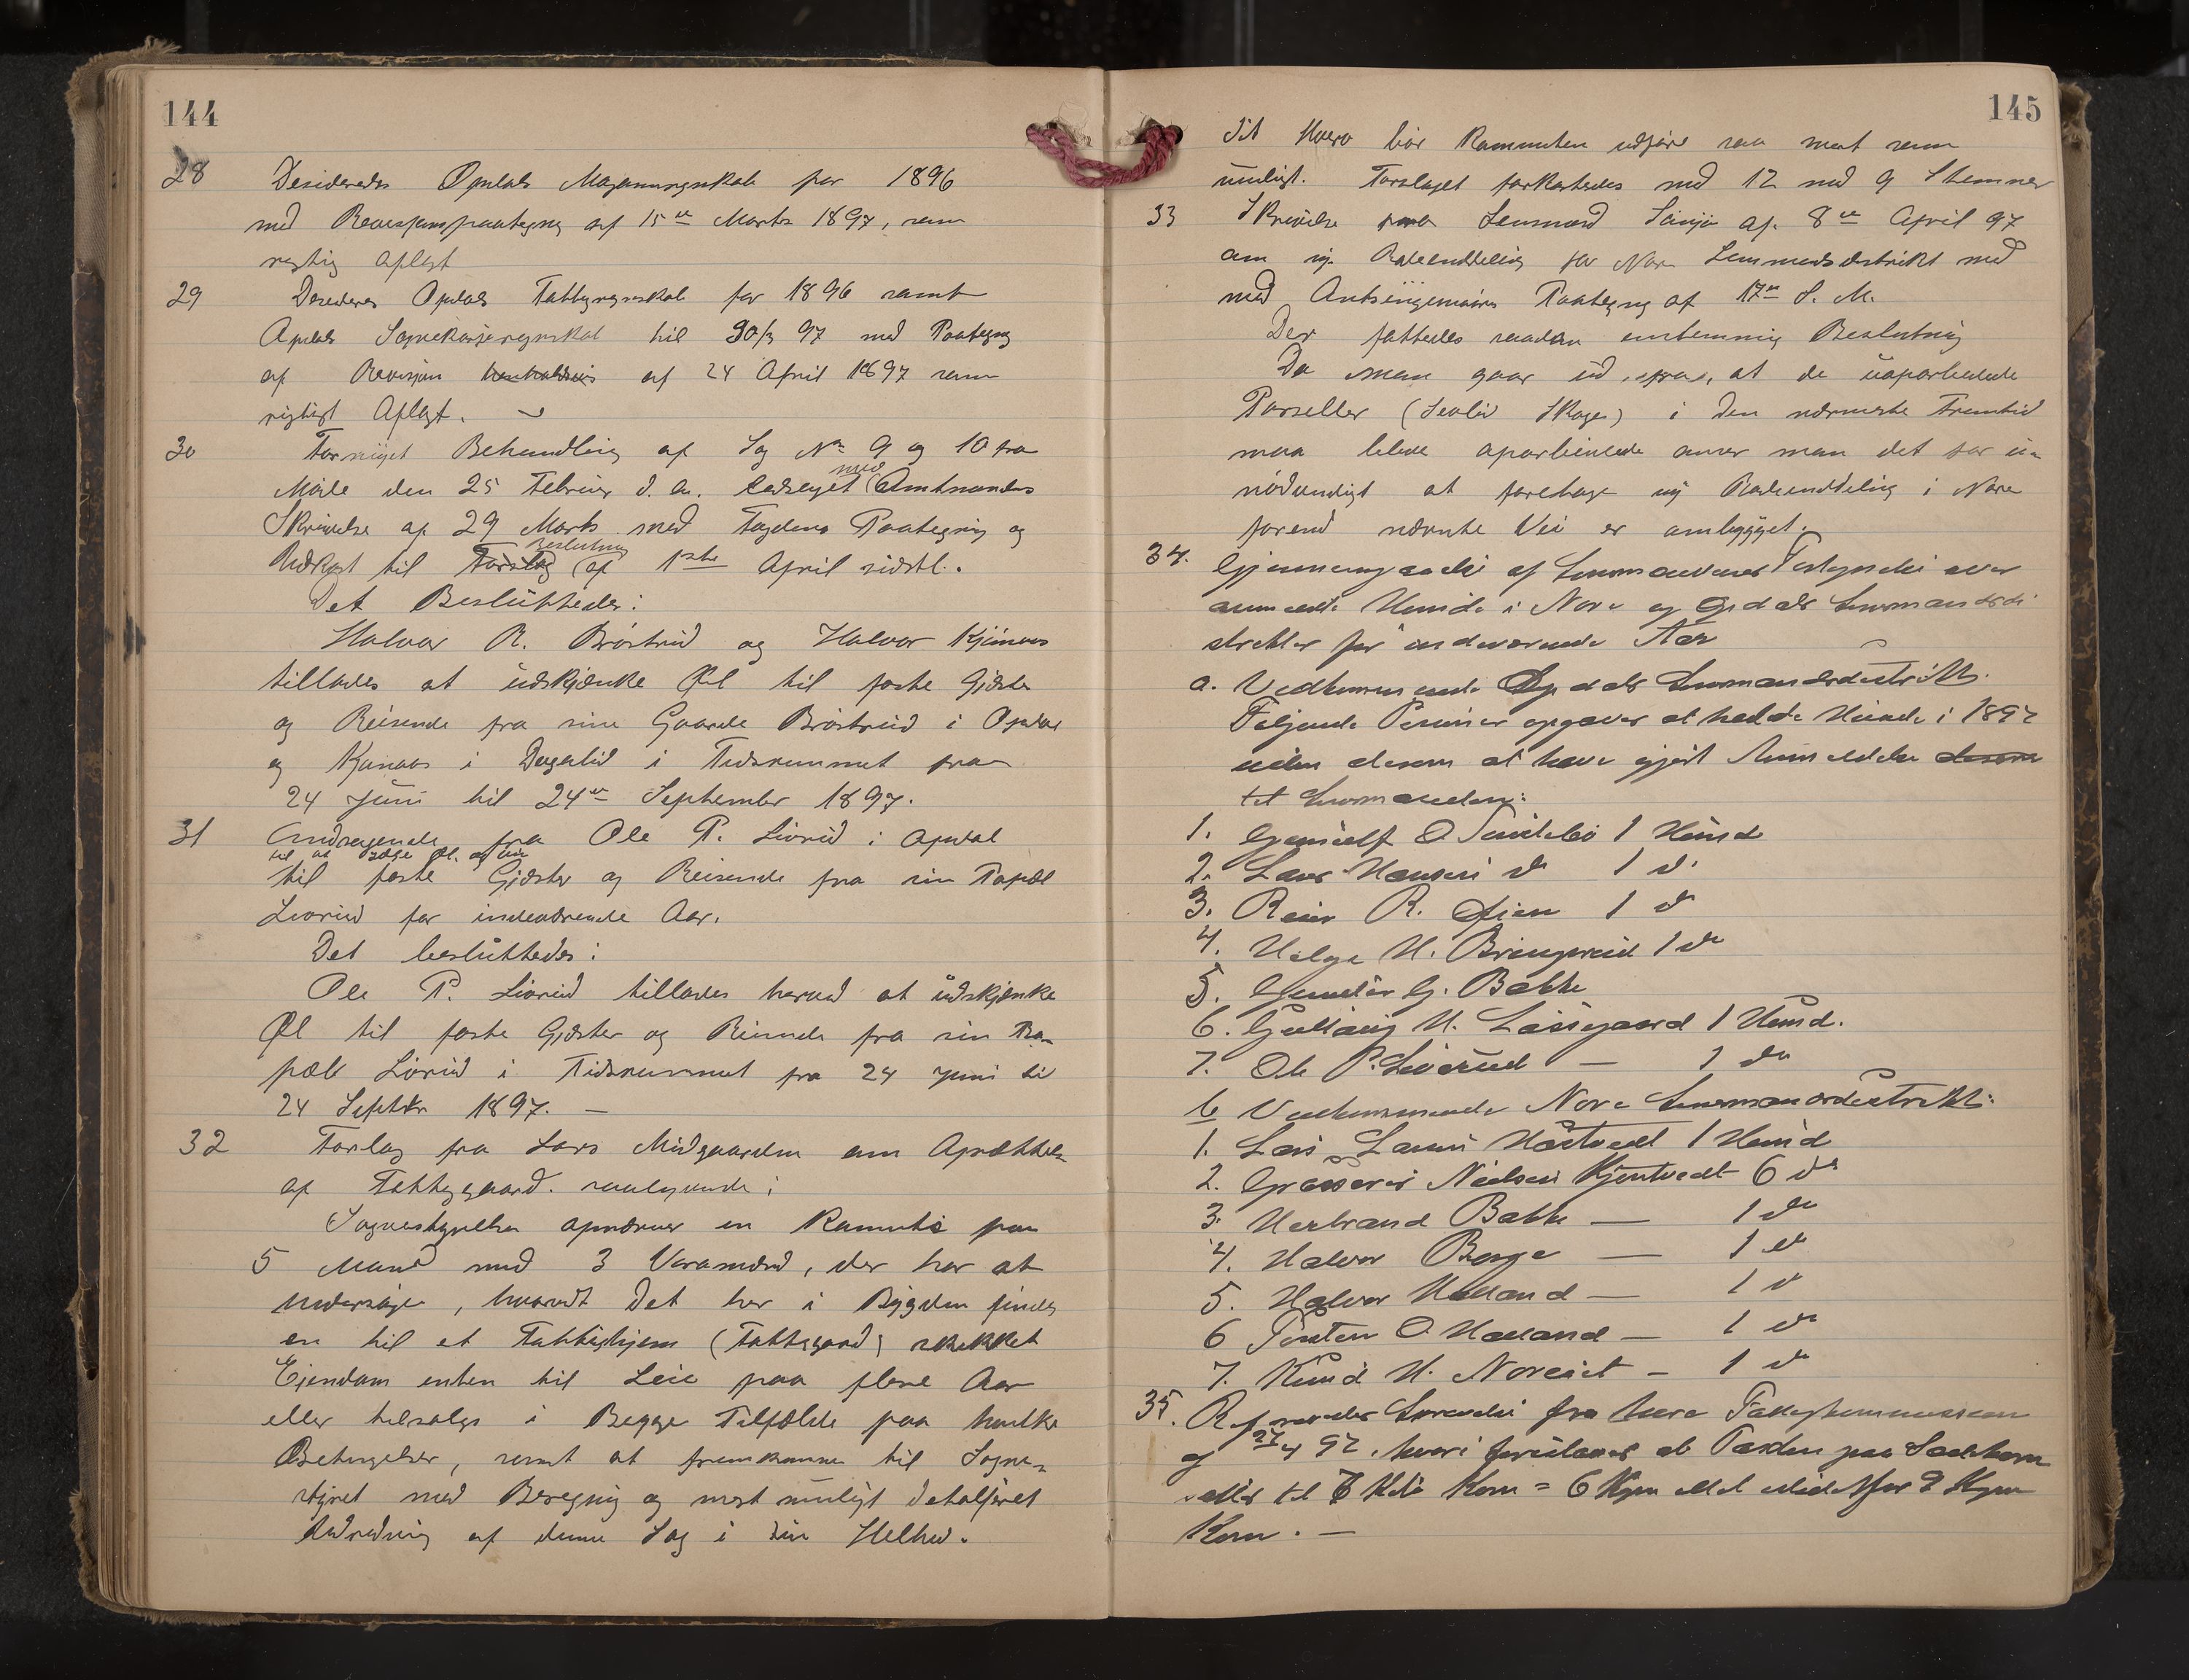 144
28 Desideredes Opdals Magasinregnskab for 1896
med Revisjonspaategning af 15de Marts 1897, som
rigtig aflagt
29 Desideres Opdals Fattigregnskab for 1896 samt
Opdals Sognekasseregnskab til 30/3 97 med Paategning
af Revisjon af 24 April 1897 som
rigtigt Aflagt.
30 Fornyet Behandling af Sag No 9 og 10 fra
Møde den 25 Februar d. A. ledsaget med Amtmandens
Skrivelse af 29 Marts med Fogdens Paategning og
Udkast til Forslag Beslutning af 1ste April sidstl.
Det Besluttedes:
Halvor R. Brøstrud og Halvor Kjønaas
tillades at udskjænke Øl til faste Gjæster
og Reisende fra sine Gaarde Brøstrud i Opdal
og Kjønaas i Dagalid i Tidsrummet fra
24 Juni til 24de September 1897.
31 Andragende fra Ole P. Livrud i Opdal
til at sælge Øl og Vin
til faste Gjæster og Reisende fra sin Popæl
Livrud for indeværende Aar.
Det besluttedes:
Ole P. Livrud tillades herved at udskjænke
Øl til faste Gjæster og Reisende fra sin
pæle Livrud i Tidsrummet fra 24 Juni til
24 Septbr 1897. —
32 Forslag fra Lars Midgaarden om Oprettelse
af Fattiggaard. saalydende:
Sognestyrelsen opnævner en Kommite paa
5 Mand med 3 Varamænd, der har at
undersøge, hvorvidt Det her i Bygden findes
en til et Fattighjem (Fattiggaard) skikket
Eiendom enten til Leie paa flere Aar
eller tilsalgs i Begge Tilfælde paa hvilke
Betingelser, samt at fremkomme til Sogne-
styret med Beregning og mest muligt detaljeret
Udredning af denne Sag i sin Helhed.
145
Sit Hverv bør Kommiteen udføre saa snart som
muligt. Forslaget forkastedes med 12 mod 9 Stemmer
33 Skrivelse fra Lensmand af 8de April 97
om ny Rodeinddeling for Nore Lensmandsdistrikt med
med Amtsingeniørens Paategning af 17de S. M.
Der fattedes saadan enstemmig Beslutning
Da man gaar ud fra, at de uoparbeidede
Parseller (Sevlid Skoge) i den nærmeste Fremtid
maa blive oparbeidede anser man det for u-
nødvendigt at foretage ny Rodeinddeling i Nore
førend nævnte Vei er ombygget.
34. Gjennemgaaelse af Lensmændenes Fortegnelse over
anmeldte Hunde i Nore og Opdals Lensmandsdi-
strikter for indeværende Aar
a. Vedkommende Opdals Lensmandsdistrikt.
Følgende Personer opgaves at havde Hunde i 1897
uden desom at have gjort Anmeldelse desom
til Lensmanden:
1. Gunulf O Tunlebø 1 Hund
2. Lars Hansen do 1 do
3. Reier R. Øien 1 do
4. Helge H. Bringerud 1 do
5. Gunder G. Bakke
6. Gullaug H. Lassegaard 1 Hund.
7. Ole P. Liverud — 1 do
b Vedkommende Nore Lensmandsdistrikt:
1. Lars Larsen Haastvedt 1 Hund
2. Nielsen Kjentvedt 6 do
3. Herbrand Bakke — 1 do
4. Halvor Borge — 1 do
5. Halvor Halland — 1 do
6 Torsten O Halland — 1 do
7. Knud H. Noreiet — 1 do
35. Refereredes Skrivelse fra herv. Fattigkommission
af 27/4 97. hvori foreslaaes at Taxten paa Sædekorn
sættes til Kilo Korn = 6 Kgm istedetfor 8 Kgm
Korn. —